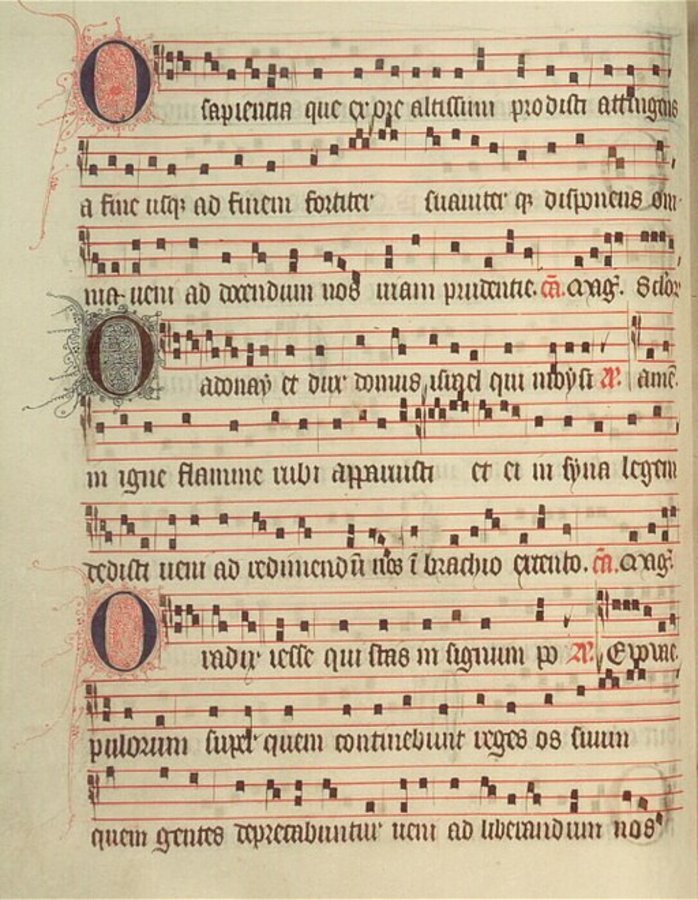 O sapientia que ex ore altissimi prodisti attingens
a fine usq; ad finem fortiter suauiter q; disponens om
nia ueni ad docendum nos uiam prudentie. añ. Mag̃.
O adonay et dux domus israel qui moysi
in igne flamme rubi apparuisti et ei in syna legem
dedisti ueni ad redimendū nos ī brachio extento. añ. Mag̃.
O radix iesse qui stas in signum po
pulorum super quem continebunt reges os suum
quem gentes deprecabuntur ueni ad liberandum nos